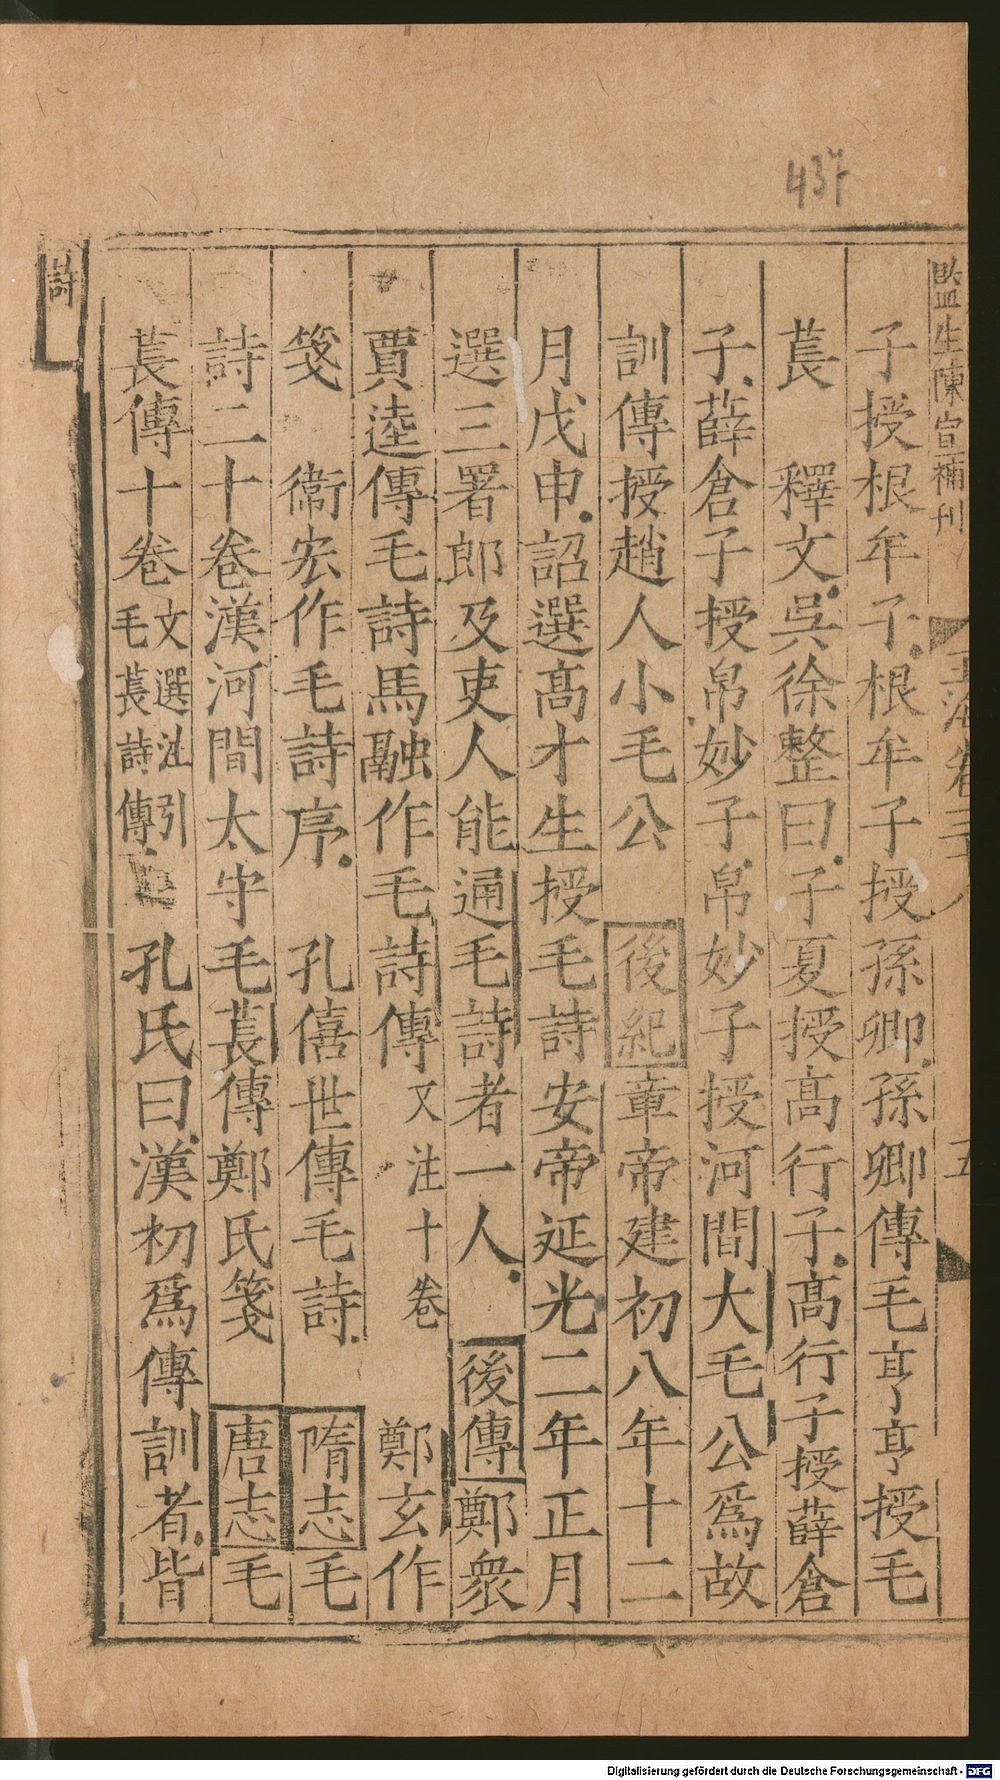 437
監生陳宣補刊
玉海卷三十八
五
子授根牟子根牟子授孫卿孫卿傳毛亨亨授毛
萇 釋文吳徐整曰子夏授高行子高行子授薛倉
子薛倉子授帛妙子帛妙子授河間大毛公爲故
訓傳授趙人小毛公 後紀章帝建初八年十二
月戊申詔選髙才生授毛詩安帝延光二年正月
選三署郎及吏人能通毛詩者一人 後傳鄭衆
賈逵傳毛詩馬融作毛詩傳又注十卷 鄭玄作
箋 衞宏作毛詩序 孔僖世傳毛詩 隋志毛
詩二十卷漢河間太守毛萇傳鄭氏箋 唐志毛
萇傳十卷文選注引毛萇詩傳 孔氏曰漢初爲傳訓者皆
詩
Digitalisierung gefördert durch die Deutsche Forschungsgemeinschaft - DFG